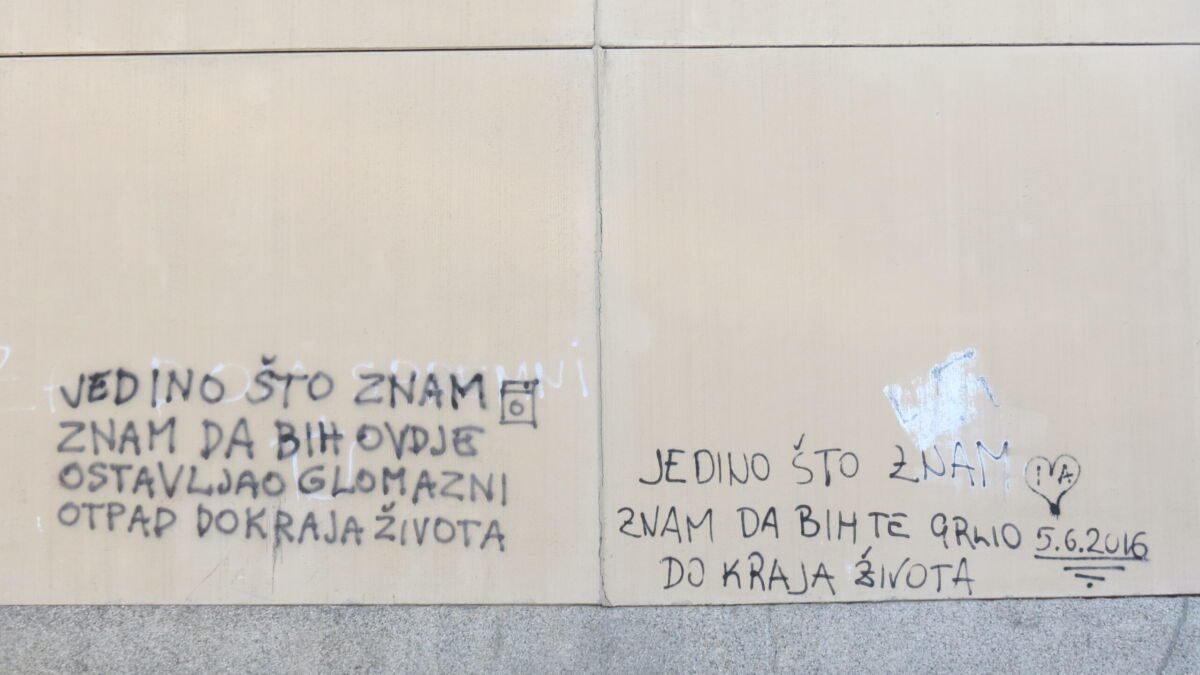 JEDINO ŠTO ZNAM
ZNAM DA BIH OVDJE
OSTAVLJAO GLOMAZNI
OTPAD DO KRAJA ŽIVOTA
JEDINO ŠTO ZNAM
IVA
ZNAM DA BIH TE GRLIO 5.6.2016
DO KRAJA ŽIVOTA